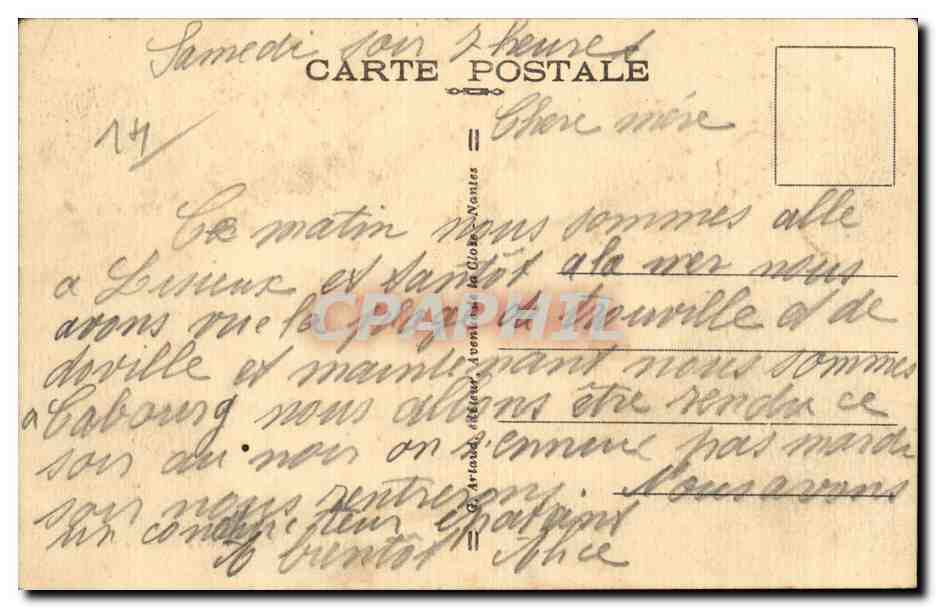 Samedi soir 7 heures
CARTE POSTALE
14
Chere mére
Ce matin nous sommes allé
a Lisieux et tantôt a la mer nous
avons vue la plage de trouville et de
doville et maintenant nous sommes
a Cabourg nous allons être rendu ce
soir au noir on s'ennuie pas mardi
soir nous rentrerons. Nous avons
un conducteur épatant
A bientôt Alice
G. Artaud, éditeur, Avenue de la Close - Nantes
CPAPHIL